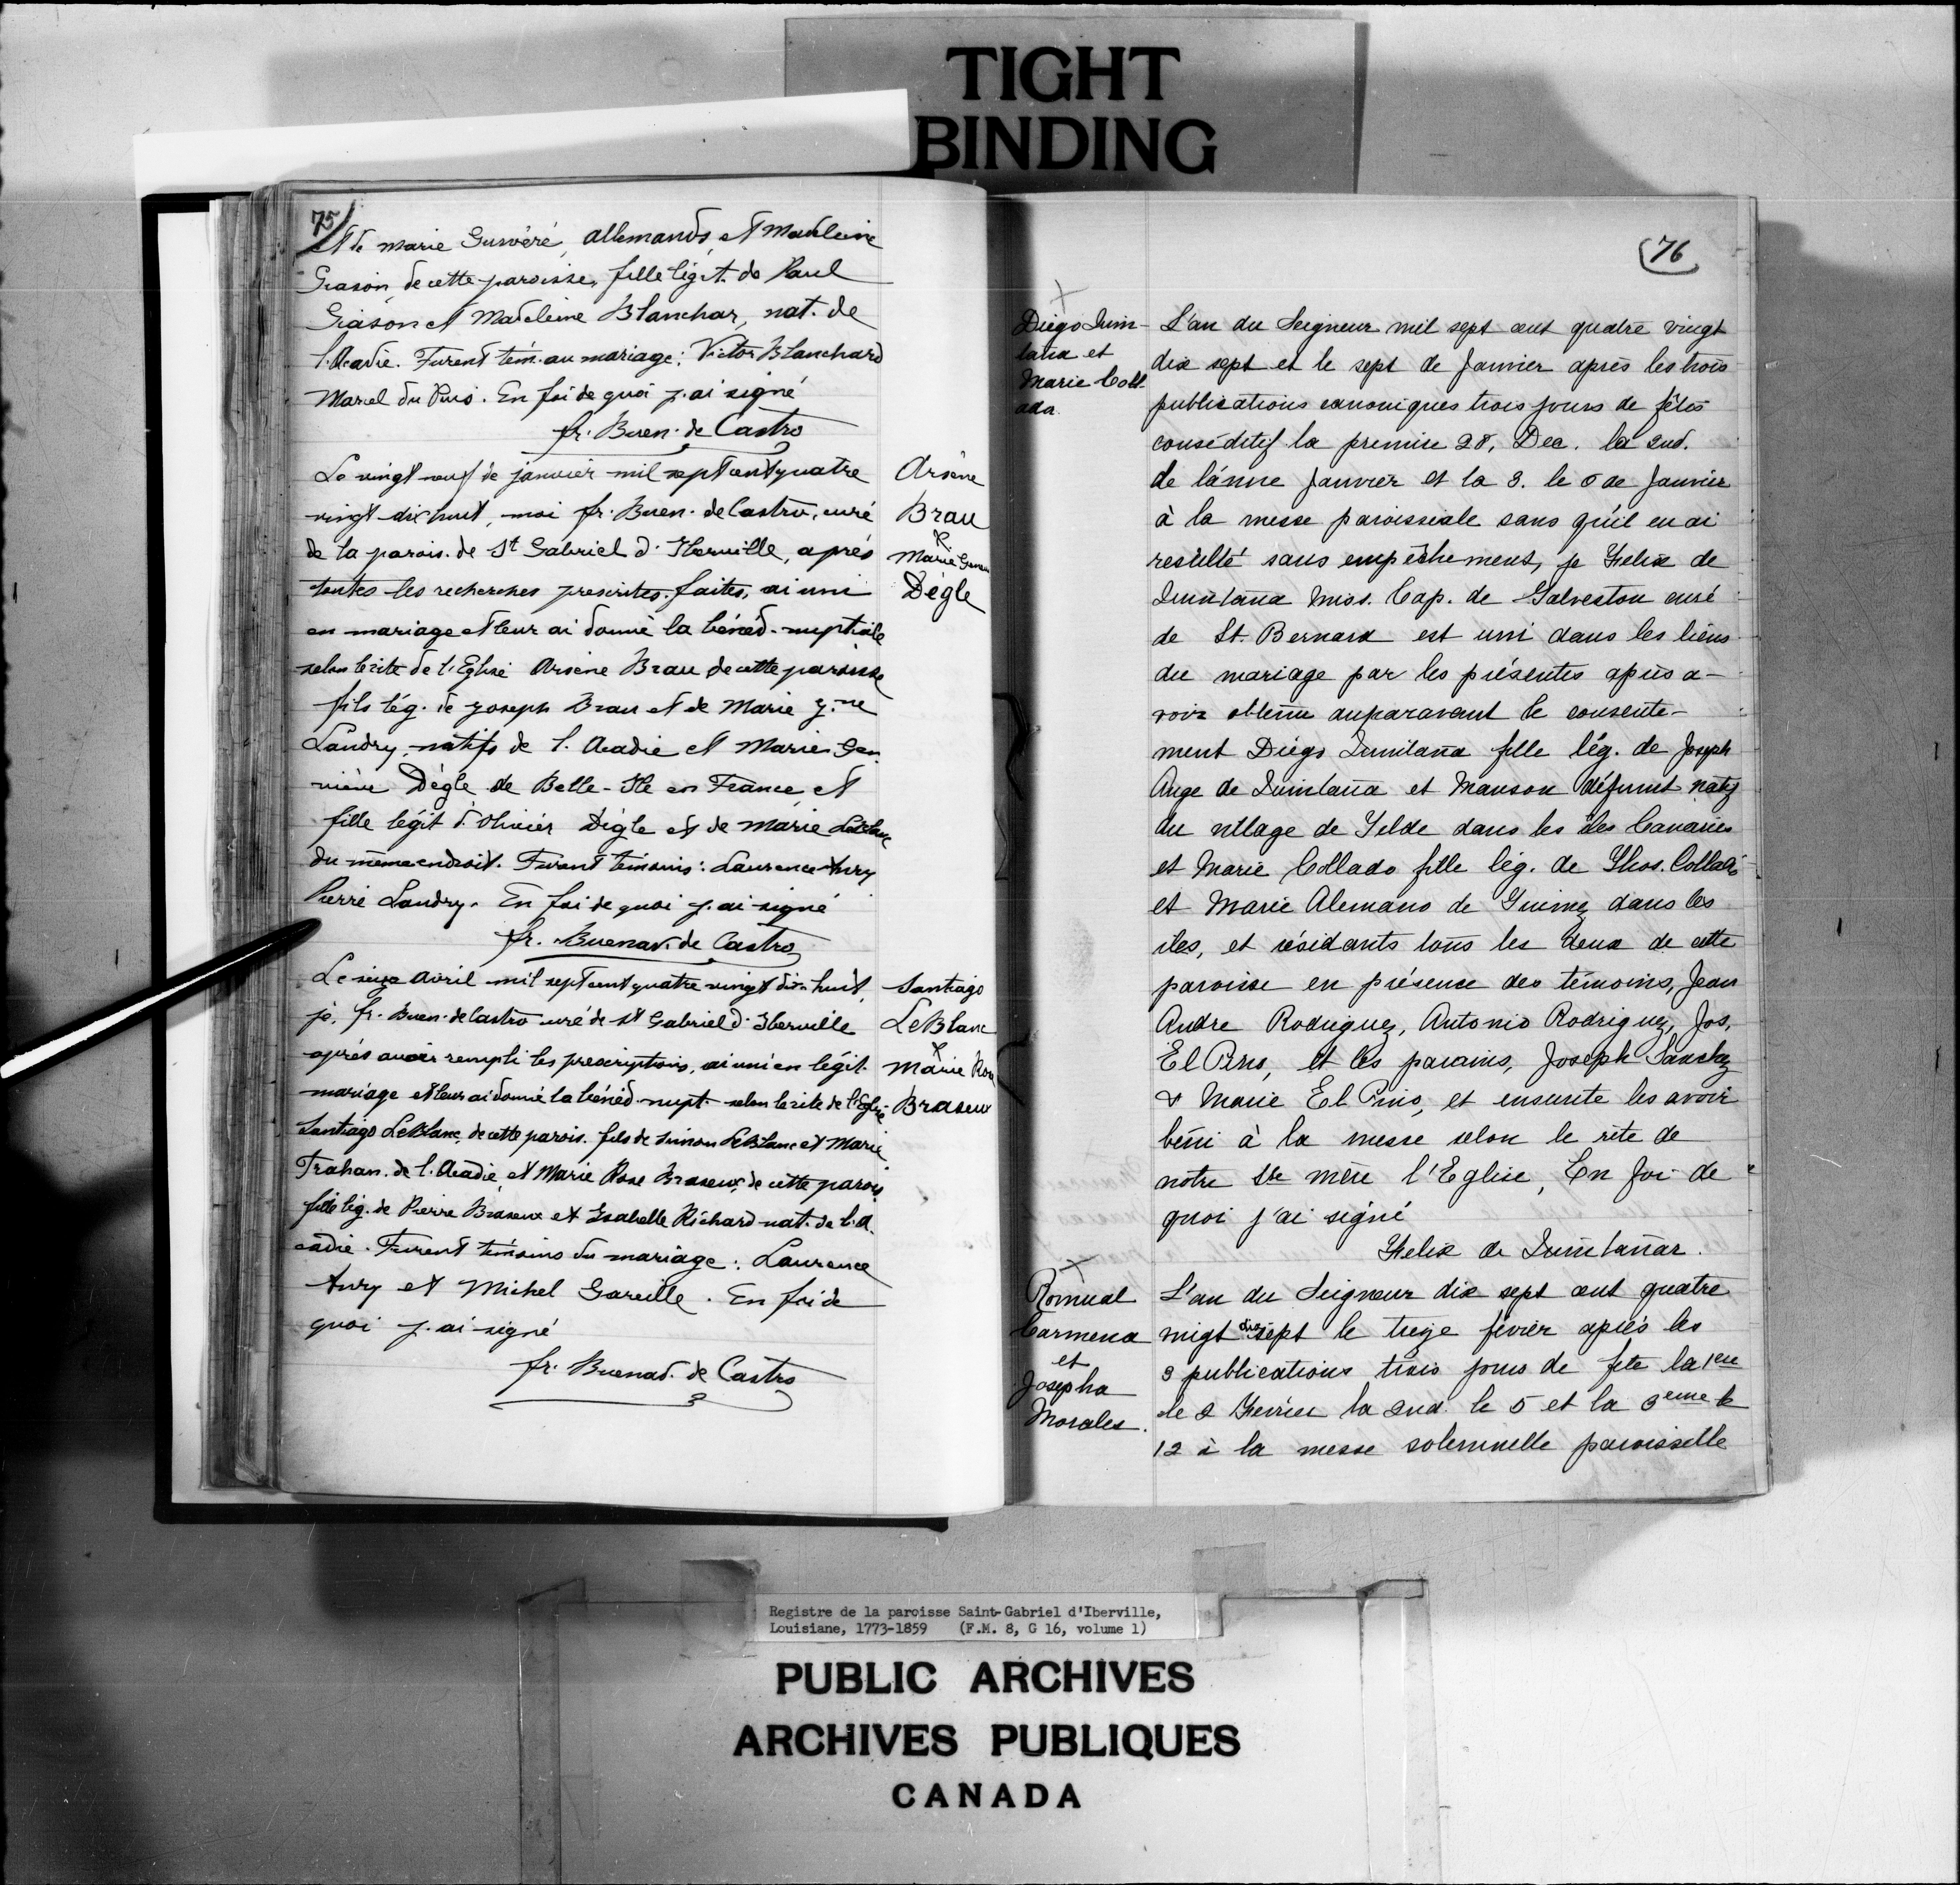 TIGHT
BINDING
75
et de marie Guivéré, allemands, et Madeleine
Grason, de cette paroisse, fille légit. de Paul
Grason et Madeleine Blanchar, nat. de
l'Acadie. Furent tém. au mariage: Victor Blanchard
Marcel du Puis. En foi de quoi j'ai signé
fr. Buen. de Castro
Le vingt neuf de janvier mil sept cent quatre
vingt dix huit, moi fr. Buen. de Castro, curé
de la parois. de St Gabriel d'Iberville, après
toutes les recherches prescrites faites, ai uni
en mariage et leur ai donné la bénéd. nuptiale
selon le rite de l'Eglise Arsene Brau de cette paroisse
fils lég. de Joseph Brau et de Marie
Landry, natifs de l'Acadie et Marie Gen
viève Dègle de Belle-Ile en France et
fille légit d'Olivier Dègle et de Marie LeBlanc
du même endroit. Furent témoins: Laurence Aury
Pierre Landry. En foi de quoi j'ai signé
fr. Buenav. de Castro
Arsène
Brau
&
Marie
Dégle
Le seize Avril mil sept cent quatre vingt dix huit,
je, fr. Buen. de Castro curé de St Gabriel d'Iberville
après avoir rempli les prescriptions, ai uni en légit.
mariage et leur ai donné la bénéd. nupt. selon le rite de l'Eglise
Santiago LeBlanc de cette parois. fils de Simon LeBlanc et Marie
Trahan de l'Acadie et Marie Rose Braseux de cette parois.
fille lég. de Pierre Braseux et Isabelle Richard nat. de l'A
cadie. Furent témoins du mariage: Laurence
Aury et Michel Gareille. En foi de
quoi j'ai signé
fr. Buenav. de Castro
Santiago
LeBlanc
&
Marie Rose
Braseux
76
Diego Quin-
tana et
Marie Coll-
ada
L'an du Seigneur mil sept cent quatre vingt
dix sept et le sept de Janvier après les trois
publications canoniques trois jours de fêtes
conséditif la premise 28, Dec. la 2nd.
de l'anne Janvier et la 3. le 6 de Janvier
à la messe paroissiale sans qu'il en ai
resulté sans empêchement, je Felix de
Quintana Miss. Cap. de Galveston curé
de St. Bernard est uni dans les liens
du mariage par les présentes après a-
voir obtenu auparavant le consente-
ment Diego Quintana fille lég. de Joseph
Ange de Quintana et Manson défunt natifs
du village de Telde dans les iles Canaries
et Marie Collado fille lég. de Thos. Collado
et Marie Alemano de Guimez dans les
iles, et résidants tous les deux de cette
paroisse en présence des témoins, Jean
Andre Rodriguez, Antonio Rodriguez, Jos.
El Pino, et les parains, Joseph Sanchez
& Marie El Pino, et ensuite les avoir
béni à la messe selon le rite de
notre Ste mère l'Eglise, En foi de
quoi j'ai signé
Felix de Quintanar.
Romual
Carmena
et
Josepha
Morales.
L'an du Seigneur dix sept cent quatre
vingt dix sept le treize février après les
3 publications trois jours de fete la 1ere
le 2 Fevrier la 2nd. le 5 et la 3eme le
12 à la messe solemnelle paroisselle
Registre de la paroisse Saint-Gabriel d'Iberville,
Louisiane, 1773-1859 (F.M. 8, G 16, volume 1)
PUBLIC ARCHIVES
ARCHIVES PUBLIQUES
CANADA